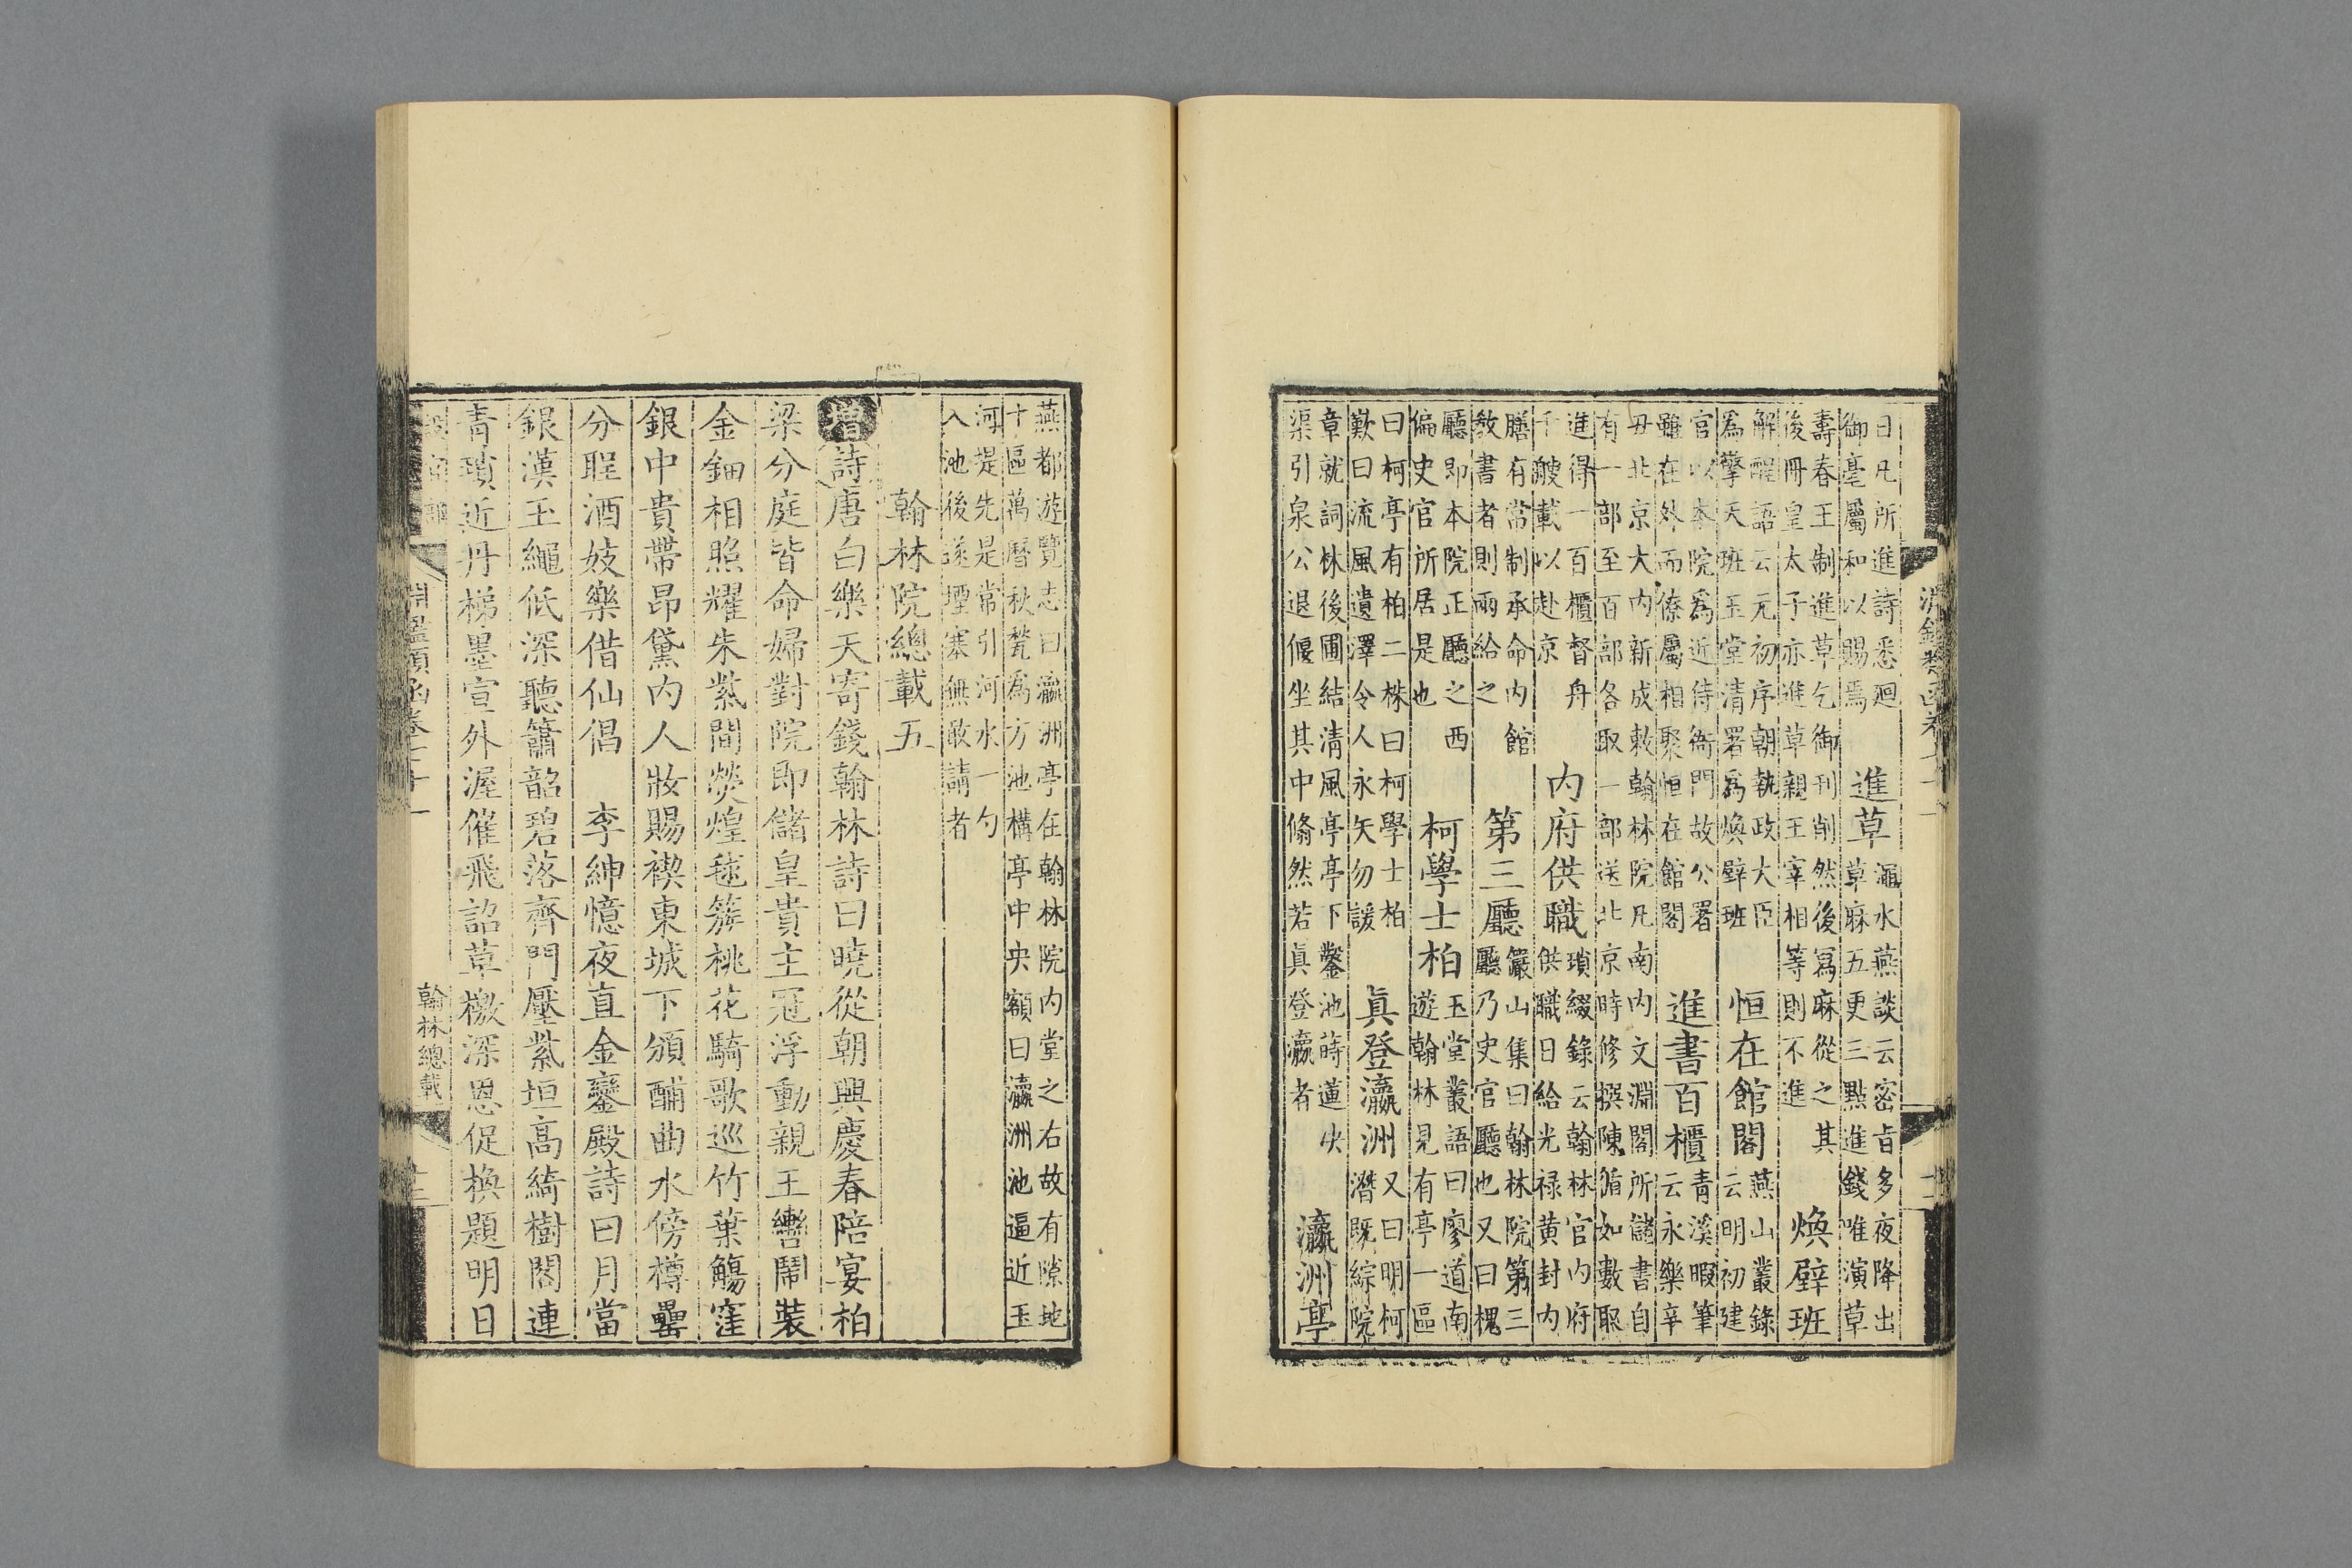 日凡所進詩悉廻
御毫屬和以賜焉
進草
澠水燕談云密旨多夜降出
草麻五更三點進錢唯演草
壽春王制進草乞御刊削然後寫麻從之其
後冊皇太子亦進草親王宰相等則不進
煥壁班
解酲語云元初序朝執政大臣
爲擎天班玉堂清署爲煥壁班
恒在館閣
燕山叢錄
云明初建
官以本院爲近侍衙門故公署
雖在外而僚屬相聚恒在館閣
進書百櫃
青溪暇筆
云永樂辛
丑北京大內新成敕翰林院凡南內文淵閣所儲書自
有一部至百部各取一部送北京時修撰陳循如數取
進得一百櫃督舟
千艘載以赴京
內府供職
瑣綴錄云翰林官內府
供職日給光祿黄封內
膳有常制承命內館
教書者則兩給之
第三廳
巖山集曰翰林院第三
廳乃史官廳也又曰槐
廳即本院正廳之西
偏史官所居是也
柯學士柏
玉堂叢語曰廖道南
遊翰林見有亭一區
曰柯亭有柏二株曰柯學士柏
歎曰流風遺澤令人永矢勿諼
眞登瀛洲
又曰明柯
潛既綜院
章就詞林後圃結清風亭亭下鑿池蒔蓮決
渠引泉公退偃坐其中翛然若眞登瀛者
瀛洲亭
燕都遊覽志曰瀛洲亭在翰林院內堂之右故有隙地
十區萬曆秋甃爲方池構亭中央額曰瀛洲池逼近玉
河堤先是常引河水一勺
入池後遂堙塞無敢請者
翰林院總載五
增詩唐白樂天寄錢翰林詩曰曉從朝興慶春陪宴柏
梁分庭皆命婦對院即儲皇貴主冠浮動親王轡鬧裝
金鈿相照耀朱紫間熒煌毬簇桃花騎歌巡竹葉觴窪
銀中貴帶昂黛內人妝賜禊東城下頒酺曲水傍樽罍
分聖酒妓樂借仙倡　李紳憶夜直金鑾殿詩曰月當
銀漢玉繩低深聽簫韶碧落齊門壓紫垣高綺樹閣連
青瑣近丹梯墨宣外渥催飛詔草檄深恩促換題明日
淵鑑類函卷七十一
翰林總載